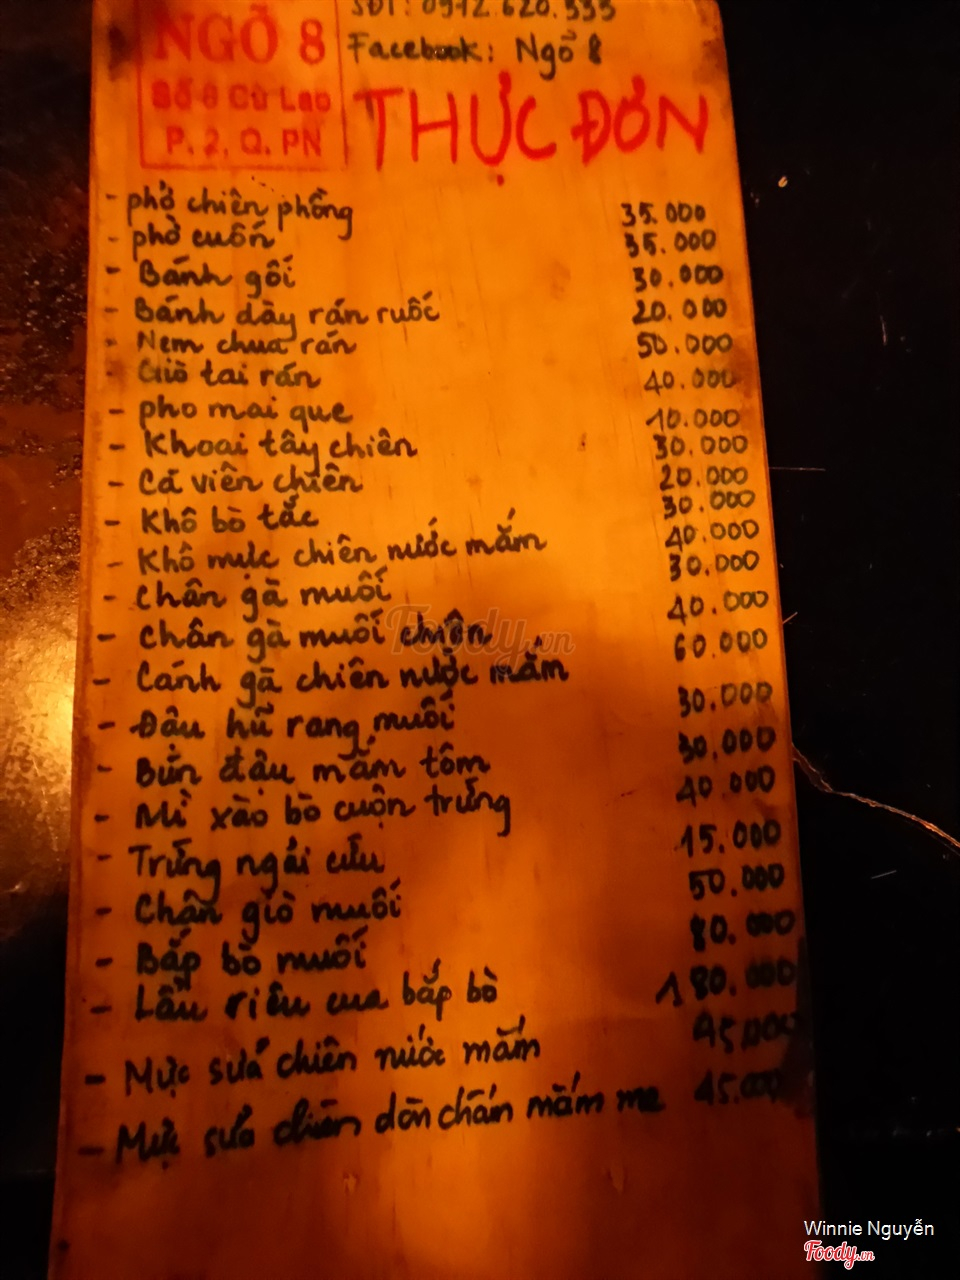 NGÕ 8
Số 8 Cù Lao
P. 2, Q. PN
SĐT: 0912.620.333
Facebook: Ngõ 8
THỰC ĐƠN
- phở chiên phồng 35.000
- phở cuốn 35.000
- Bánh gối 30.000
- Bánh dày rán ruốc 20.000
- Nem chua rán 50.000
- Giò tai rán 40.000
- pho mai que 10.000
- Khoai tây chiên 30.000
- Cá viên chiên 20.000
- Khô bò tắc 30.000
- Khô mực chiên nước mắm 40.000
- Chân gà muối 30.000
- Chân gà muối chiên 40.000
- Cánh gà chiên nước mắm 60.000
- Đậu hũ rang muối 30.000
- Bún đậu mắm tôm 30.000
- Mì xào bò cuộn trứng 40.000
- Trứng ngải cứu 15.000
- Chân giò muối 50.000
- Bắp bò muối 80.000
- Lẩu riêu cua bắp bò 180.000
- Mực sữa chiên nước mắm 45.000
- Mực sữa chiên dòn chấm mắm me 45.000
Foody.vn
Winnie Nguyễn
Foody.vn